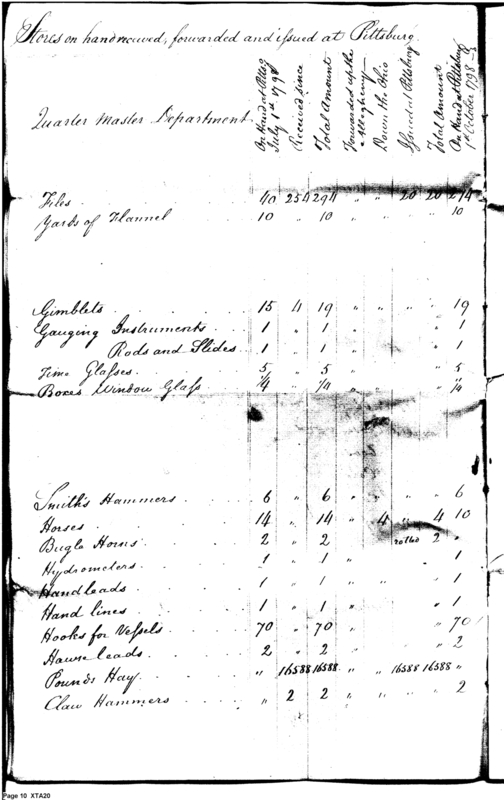 Stores on hand received, forwarded and issued at Pittsburg.
Quarter Master Department
On Hand at Pittsbg July 1st 1798
Received since
Total Amount
Forwarded up the Allegheny
Down the Ohio
Issued at Pittsburg
Total Amount
On Hand at Pittsburg 1st October 1798
Files 40 254 294 " " 20 20 274
Yards of Flannel 10 " 10 " " " " 10
Gimblets 15 4 19 " " " " 19
Gauging Instruments 1 " 1 " " " " 1
Rods and Slides 1 " 1 " " " " 1
Time Glasses 5 " 5 " " " " 5
Boxes Window Glass 1/4 " 1/4 " " " " 1/4
Smith's Hammers 6 " 6 " " " " 6
Horses 14 " 14 " 4 " 4 10
Bugle Horns 2 " 2 " 2 "
Hydrometers 1 " 1 " 1
Hand leads 1 " 1 " " " " 1
Hand lines 1 " 1 " " " " 1
Hooks for Vessels 70 " 70 " " " " 70
Hawse leads 2 " 2 " " " " 2
Pounds Hay " 16588 16588 " " 16588 16588 "
Claw Hammers " 2 2 " " " " 2
Page 10 XTA20